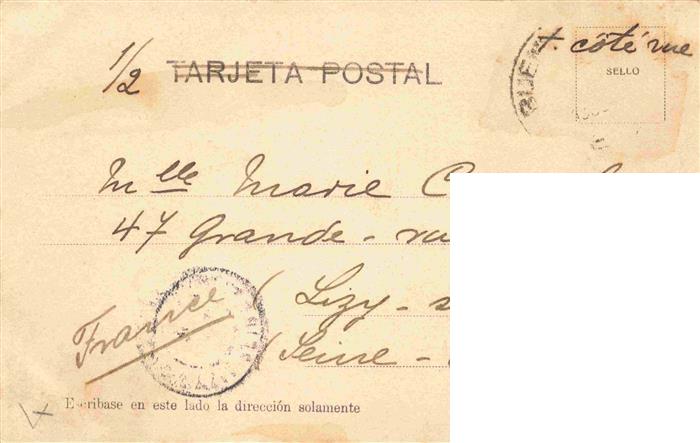 t. côté vue
1/2
TARJETA POSTAL
SELLO
BUEN
Mlle Marie C
47 Grande-ru
(Lizy-s
France
(Seine-
Escribase en este lado la dirección solamente